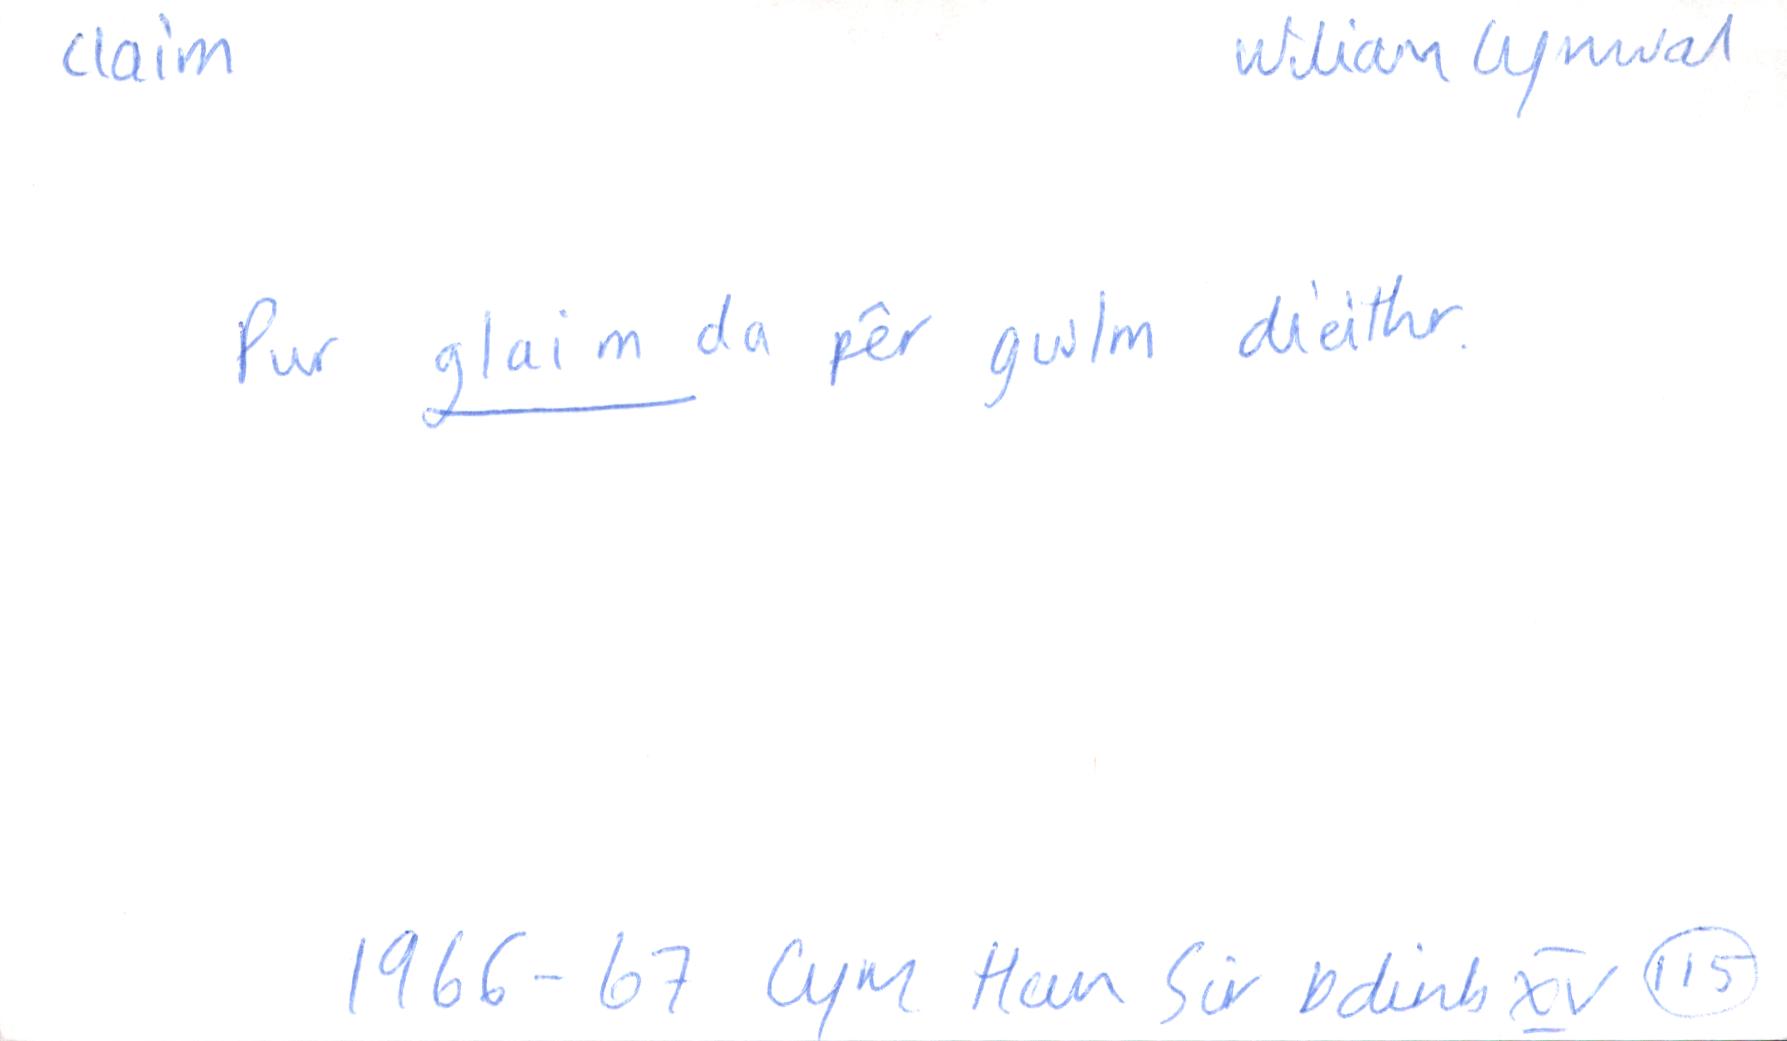 claim Wiliam Cynwal
Pur glaim da pêr gwlm dïeithr.
1966-67 Cym Han Sir Ddinb XV 115